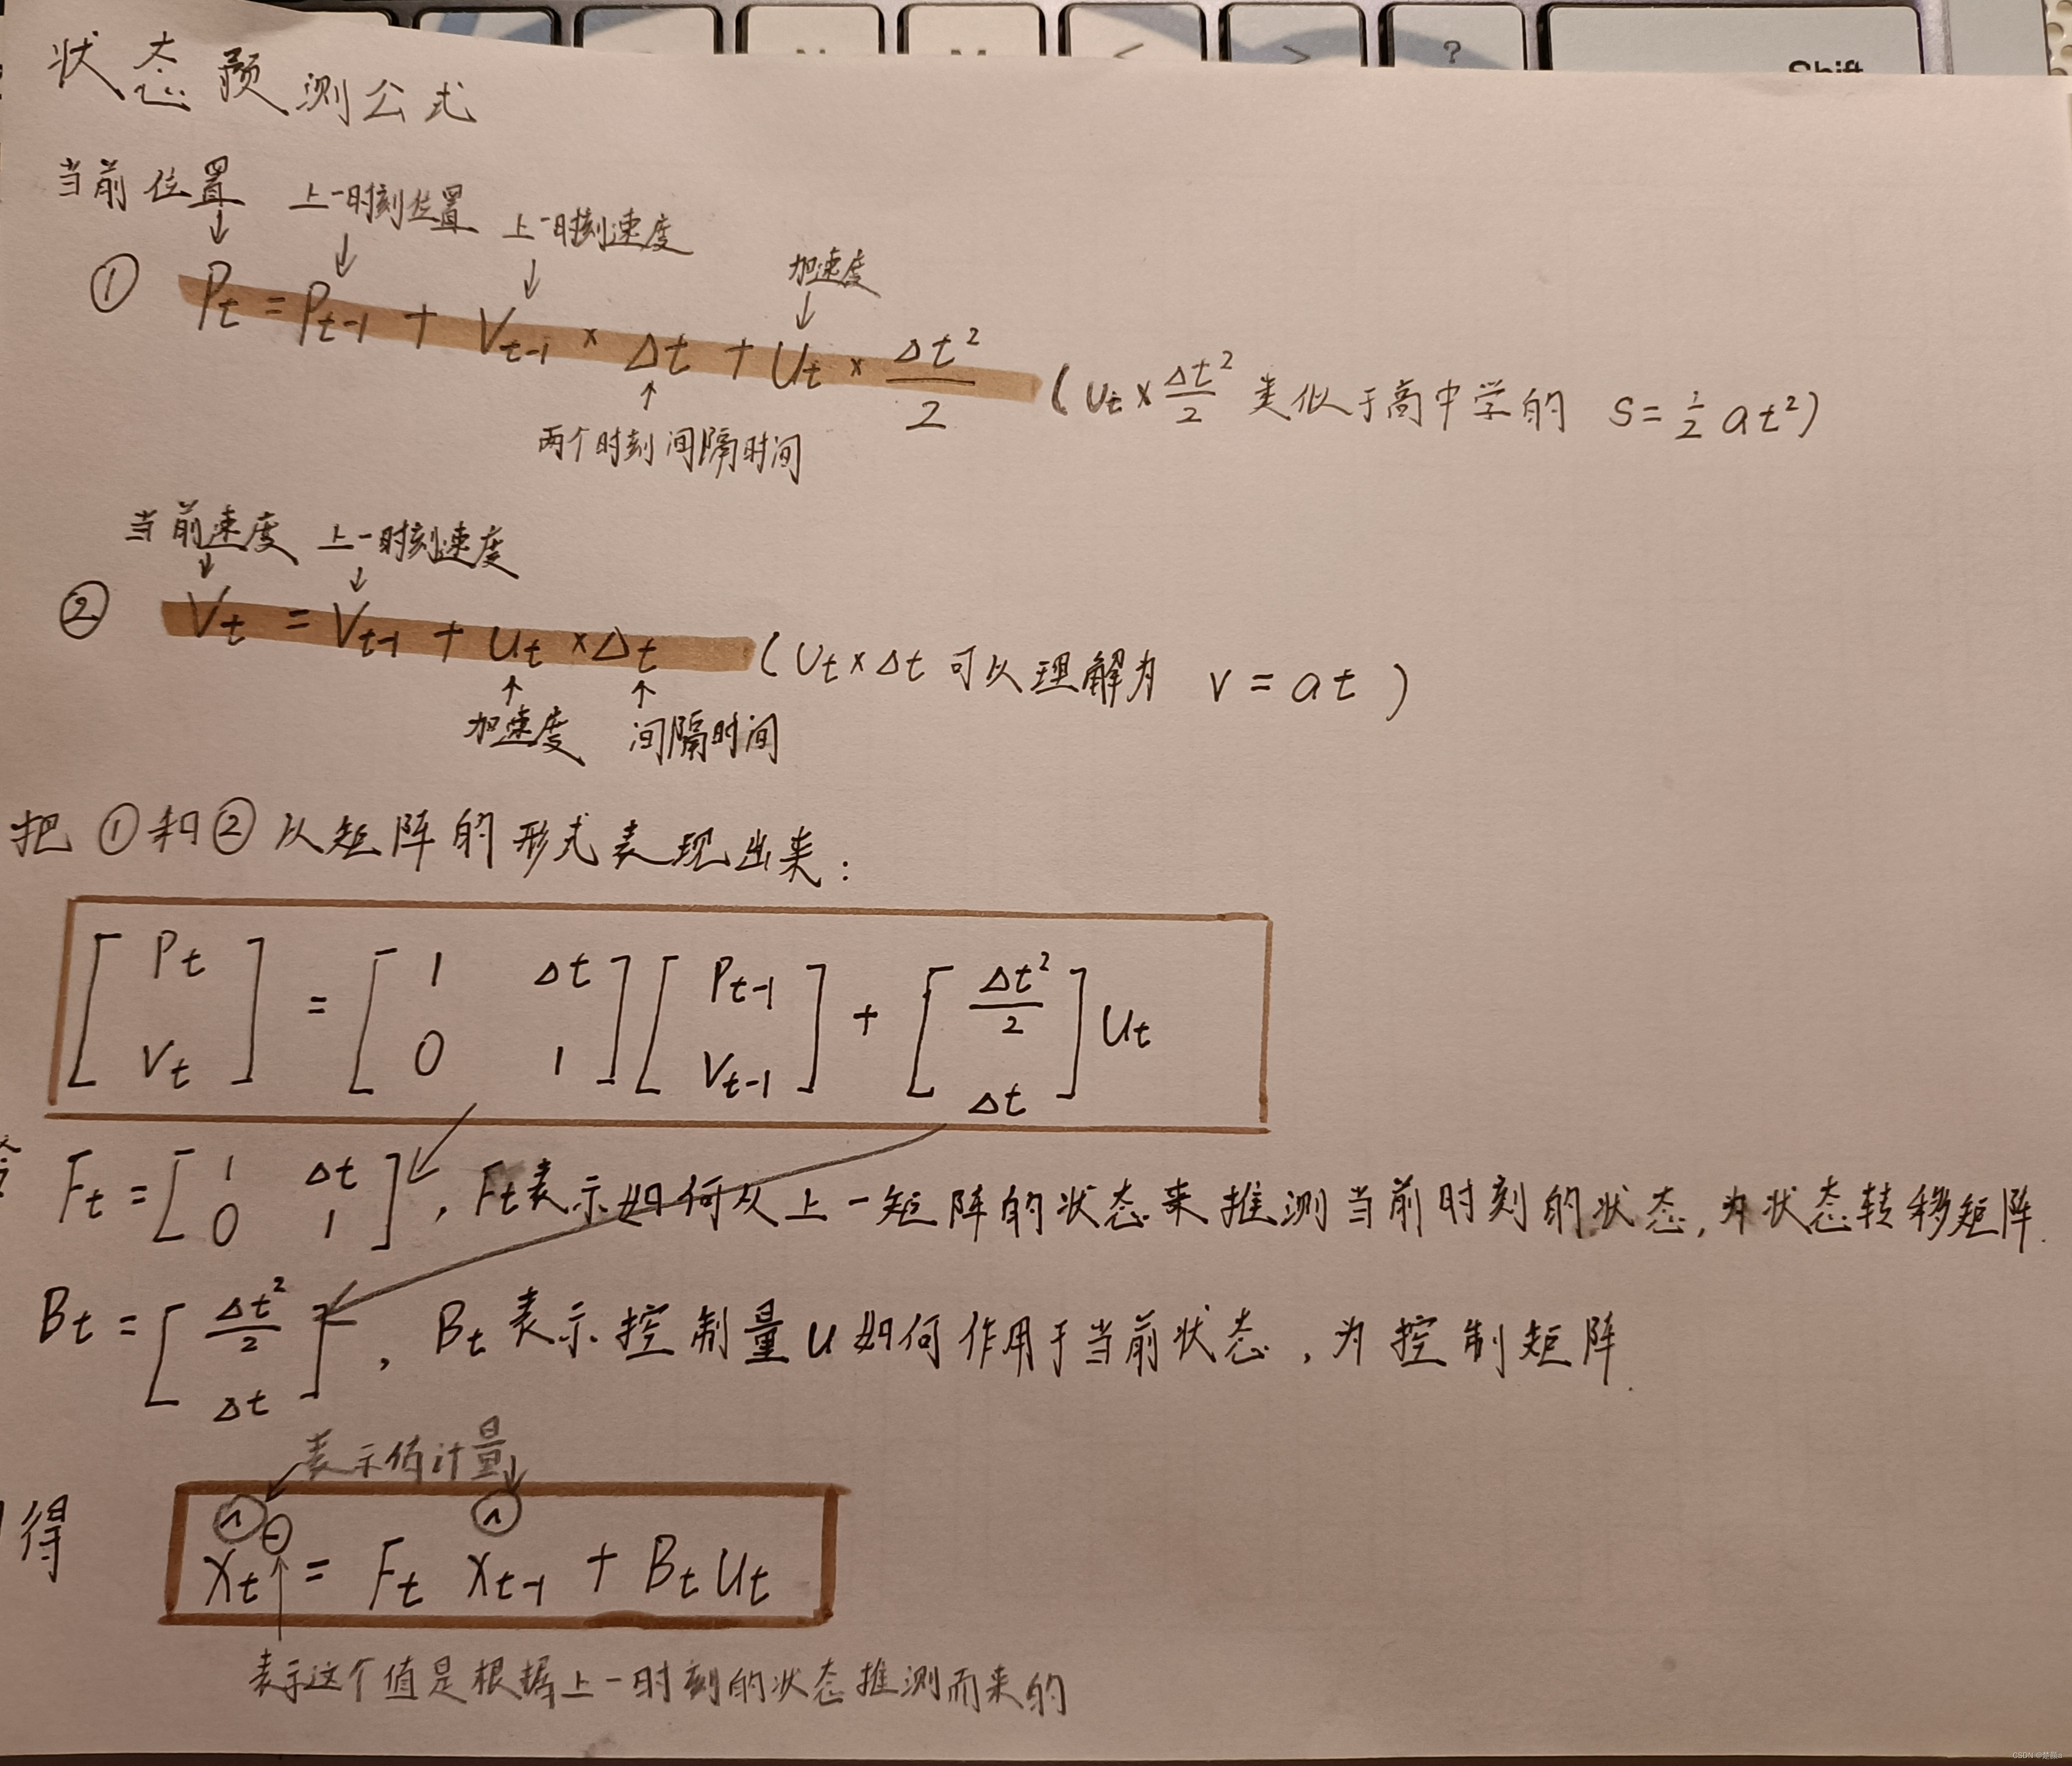 < > ? Shift
状态预测公式
当前位置 上一时刻位置 上一时刻速度 加速度
① Pt = Pt-1 + Vt-1 × Δt + Ut × Δt²/2 (Ut × Δt²/2 类似于高中学的 S = 1/2 at²)
两个时刻间隔时间
当前速度 上一时刻速度
② Vt = Vt-1 + Ut × Δt (Ut × Δt 可以理解为 v = at)
加速度 间隔时间
把①和②以矩阵的形式表现出来:
[Pt Vt] = [1 Δt 0 1] [Pt-1 Vt-1] + [Δt²/2 Δt] Ut
令 Ft = [1 Δt 0 1], Ft表示如何从上一矩阵的状态来推测当前时刻的状态, 为状态转移矩阵.
Bt = [Δt²/2 Δt], Bt表示控制量u如何作用于当前状态, 为控制矩阵.
表示估计量
得 x̂t⁻ = Ft x̂t-1 + Bt Ut
表示这个值是根据上一时刻的状态推测而来的